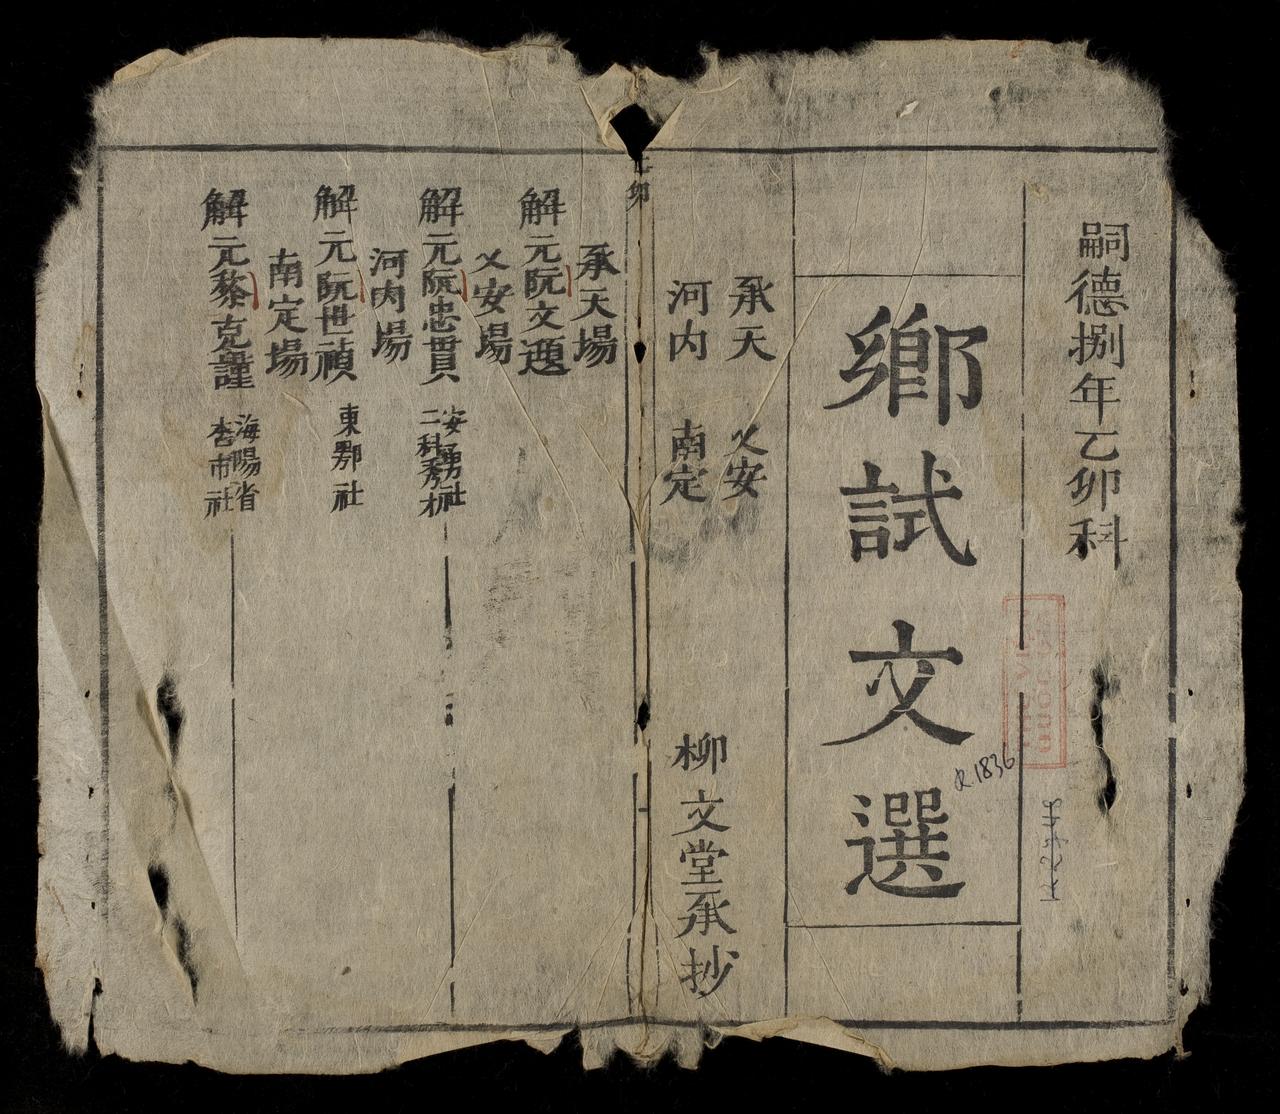 嗣德捌年乙卯科
鄉試文選
承天 乂安
河内 南定
柳文堂承抄
乙卯
承天場
解元阮文題
乂安場
解元阮忠貫 安勇社 二科秀才
河内場
解元阮世禎 東鄂社
南定場
解元黎克謹 海陽省 杏市社
R.1836